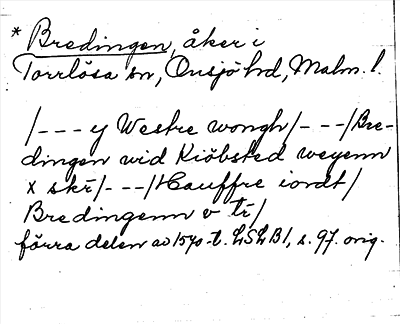 * Bredingen, åker i
Torrlösa sn, Onsjö hd, Malm. l.
/--- y Westre wongh/---/Bre-
dingen wid Kiöbsted weyenn
x skr/---/Hauffre iordt/
Bredingenn v tr/
förra delen av 1570-t. LSLB1, s. 97. orig.